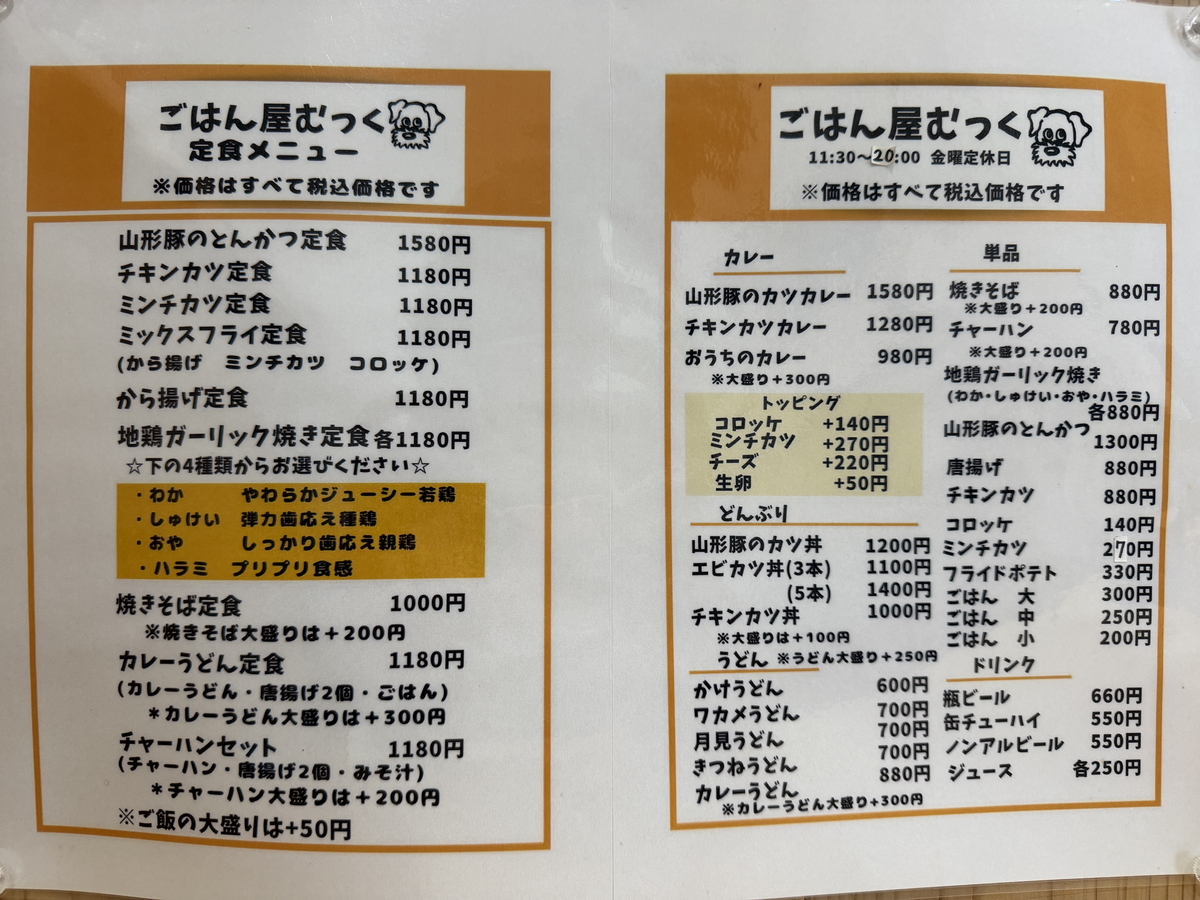 ごはん屋むっく
定食メニュー
※価格はすべて税込価格です
山形豚のとんかつ定食 1580円
チキンカツ定食 1180円
ミンチカツ定食 1180円
ミックスフライ定食 1180円
(から揚げ ミンチカツ コロッケ)
から揚げ定食 1180円
地鶏ガーリック焼き定食 各1180円
☆下の4種類からお選びください☆
・わか やわらかジューシー若鶏
・しゅけい 弾力歯応え種鶏
・おや しっかり歯応え親鶏
・ハラミ プリプリ食感
焼きそば定食 1000円
※焼きそば大盛りは＋200円
カレーうどん定食 1180円
(カレーうどん・唐揚げ2個・ごはん)
＊カレーうどん大盛りは＋300円
チャーハンセット 1180円
(チャーハン・唐揚げ2個・みそ汁)
＊チャーハン大盛りは＋200円
※ご飯の大盛りは+50円
ごはん屋むっく
11:30〜20:00 金曜定休日
※価格はすべて税込価格です
カレー
山形豚のカツカレー 1580円
チキンカツカレー 1280円
おうちのカレー 980円
※大盛り＋300円
トッピング
コロッケ +140円
ミンチカツ +270円
チーズ +220円
生卵 +50円
どんぶり
山形豚のカツ丼 1200円
エビカツ丼(3本) 1100円
(5本) 1400円
チキンカツ丼 1000円
※大盛りは＋100円
うどん ※うどん大盛り＋250円
かけうどん 600円
ワカメうどん 700円
月見うどん 700円
きつねうどん 700円
カレーうどん 880円
※カレーうどん大盛り+300円
単品
焼きそば 880円
※大盛り＋200円
チャーハン 780円
※大盛り＋200円
地鶏ガーリック焼き
(わか・しゅけい・おや・ハラミ)
各880円
山形豚のとんかつ
1300円
唐揚げ 880円
チキンカツ 880円
コロッケ 140円
ミンチカツ 270円
フライドポテト 330円
ごはん 大 300円
ごはん 中 250円
ごはん 小 200円
ドリンク
瓶ビール 660円
缶チューハイ 550円
ノンアルビール 550円
ジュース 各250円